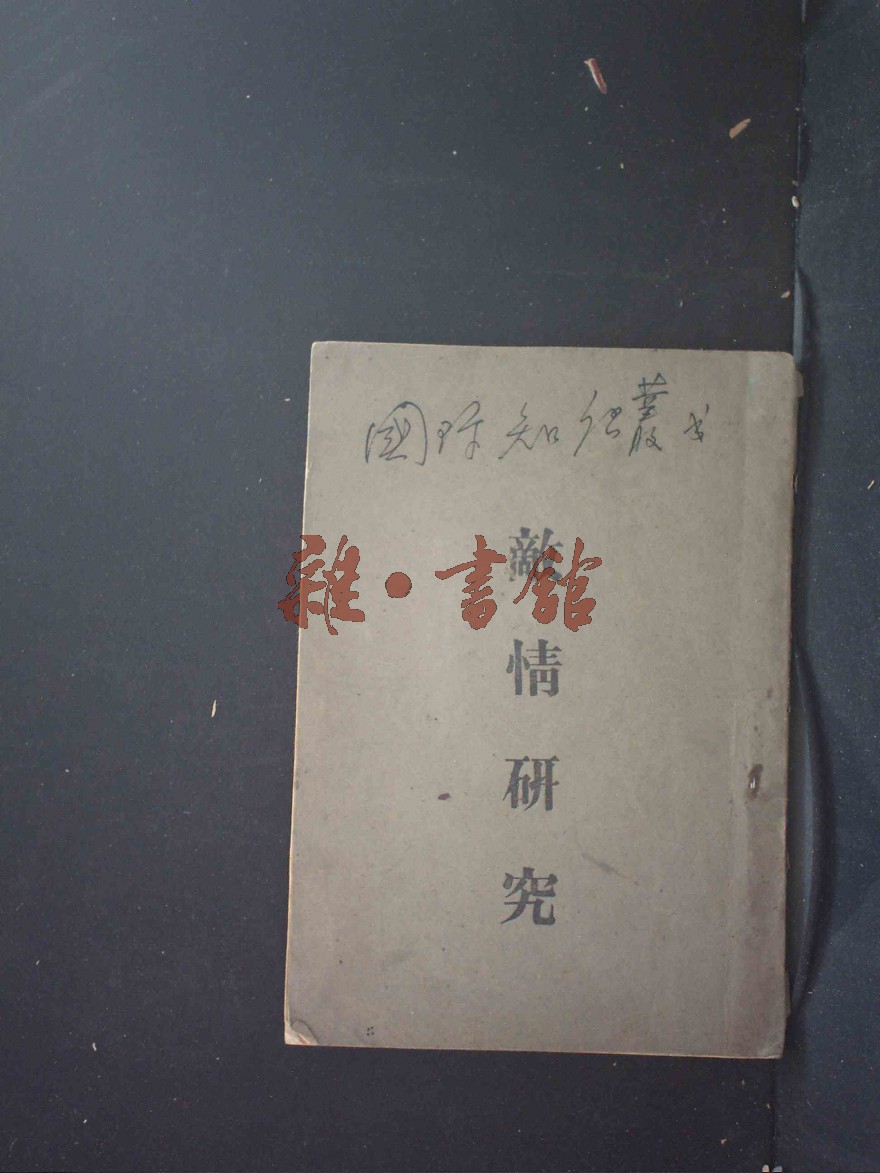 國际知识叢书
雜·書館
敵情研究